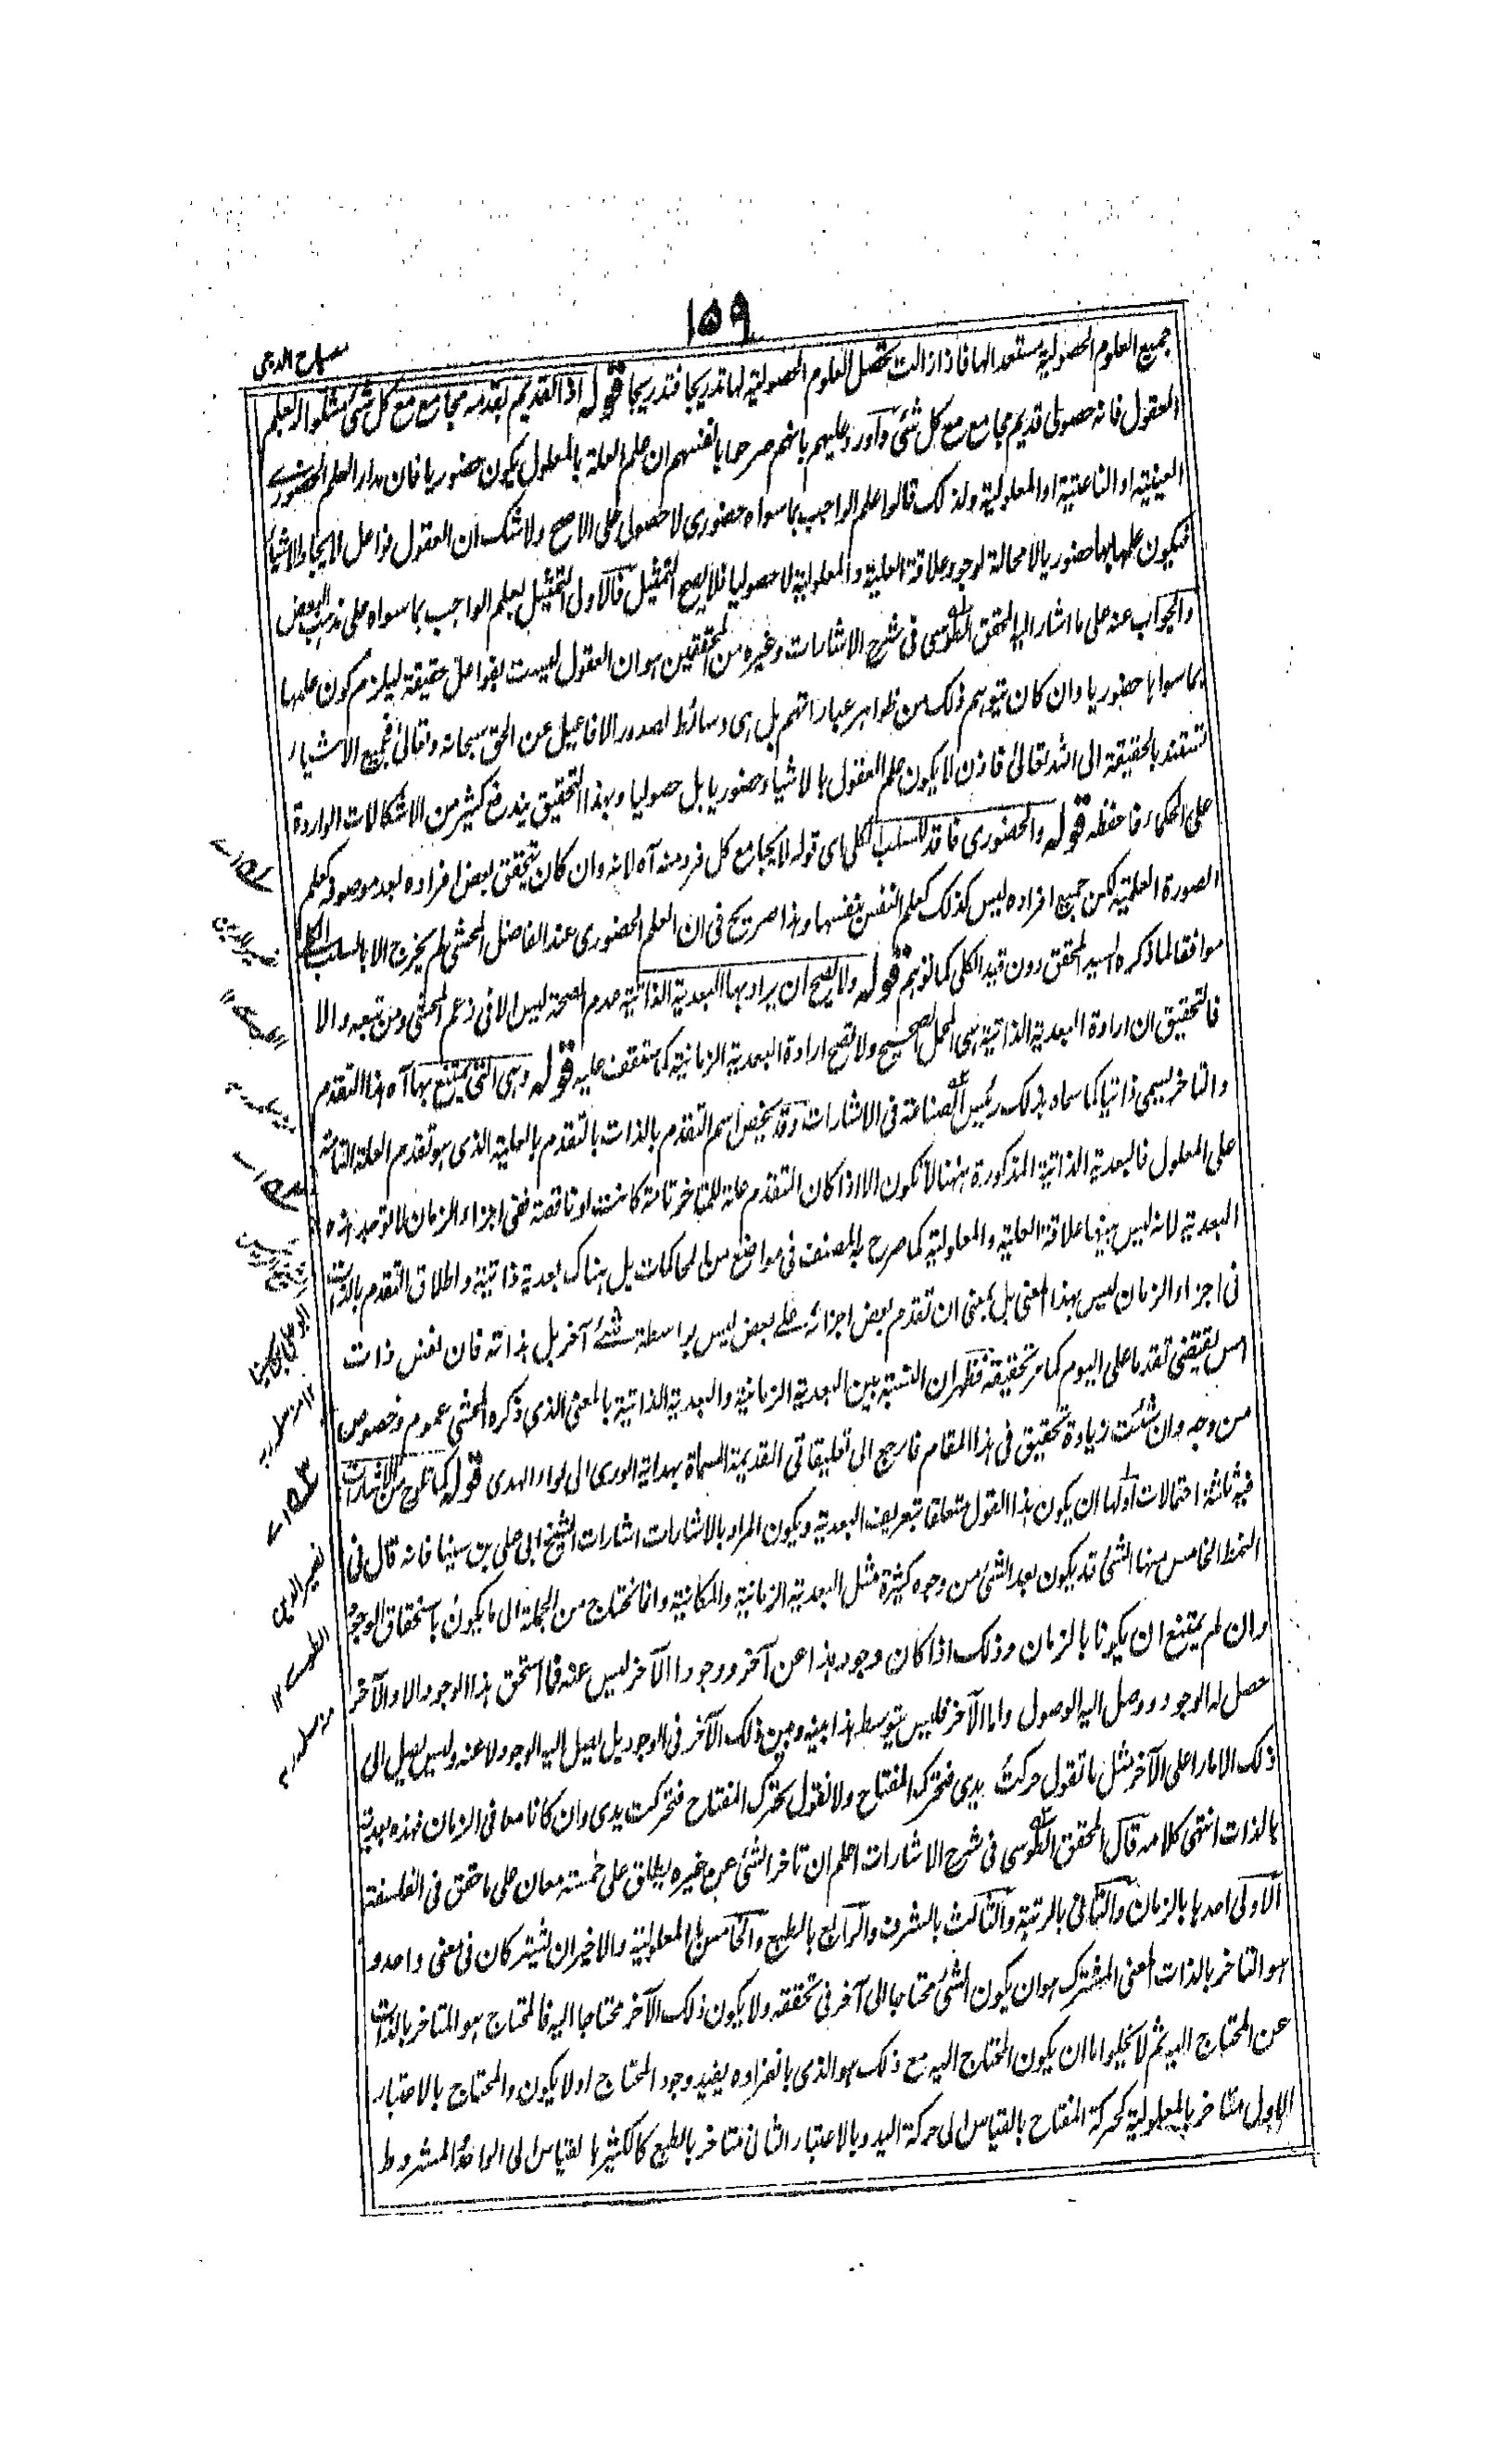 ١٥٩
مصباح الدجى
جميع العلوم الحصولية مستعد الها فاذا زالت تحصل العلوم الحصولية لها تدريجا فتدريجا قوله اذ القديم بقدمه مجامع مع كل شئ مثلوا بعلم
العقول فانه حصولى قديم مجامع مع كل شئ وآورد عليهم بانهم صرحوا بانفسهم ان علم العلة بالمعلول يكون حضوريا فان مدار العلم الحضورى
العينية او الناعتية او المعلولية ولذلك قالوا علم الواجب بما سواه حضورى لا حصولى على الاصح ولا شك ان العقول فواعل لايجاد الاشياء
فيكون علمها بها حضوريا لا محالة لوجود علاقة العلية والمعلولية لا حصوليا فلا يصح التمثيل فالاولى التمثيل بعلم الواجب بما سواه على مذهب البعض
والجواب عنه على ما اشار اليه المحقق الطوسى فى شرح الاشارات وغيره من المحققين هو ان العقول ليست بفواعل حقيقة ليلزم كون علمها
بما سواها حضوريا وان كان يتوهم ذلك من ظواهر عباراتهم بل هى وسائط لصدور الافاعيل عن الحق سبحانه وتعالى فجميع الاشياء
تستند بالحقيقة الى الله تعالى فاذن لا يكون علم العقول بالاشياء حضوريا بل حصوليا وبهذا التحقيق يندفع كثير من الاشكالات الواردة
على الحكماء فاحفظه قوله والحضورى فاقد للسلب الكلى اى قوله لا يجامع كل فرد منه آه لانه وان كان يتحقق بعض افراده بعد موصوفه كعلم
الصورة العلمية لكن جميع افراده ليس كذلك كعلم النفس بنفسها وهذا صريح فى ان العلم الحضورى عند الفاضل المحشى لم يخرج الا بالسلب الكلى
موافقا لما ذكره السيد المحقق دون قيد الكلى كما توهم قوله ولا يصح ان يراد بها البعدية الذاتية عدم الصحة ليس الا فى زعم المحشى ومن تبعه والا
فالتحقيق ان ارادة البعدية الذاتية هى المحمل الصحيح ولا تصح ارادة البعدية الزمانية كما ستقف عليه قوله وهى التى يمتنع بها آه هذا التقدم
والتاخر يسمى ذاتيا كما سماه بذلك رئيس الصناعة فى الاشارات وقد يخص اسم التقدم بالذات بالتقدم بالعلية الذى هو تقدم العلة التامة
على المعلول فالبعدية الذاتية المذكورة ههنا لا تكون الا اذا كان المتقدم علة للمتاخر تامة كانت او ناقصة ففى اجزاء الزمان لا توجد هذه
البعدية لانه ليس بينها علاقة العلية والمعلولية كما صرح به المصنف فى مواضع من المحاكمات بل هناك بعدية ذاتية واطلاق التقدم بالذات
فى اجزاء الزمان ليس بهذا المعنى بل بمعنى ان تقدم بعض اجزائه على بعض ليس بواسطة شئ آخر بل بذاته فان نفس ذات
امس تقتضى تقدما على اليوم كما مر تحقيقه فظهر ان النسبة بين البعدية الزمانية والبعدية الذاتية بالمعنى الذى ذكره المحشى عموم وخصوص
من وجه وان شئت زيادة تحقيق فى هذا المقام فارجع الى تعليقاتى القديمة المسماة بهداية الورى الى لواء الهدى قوله كما تلوح من الاشارات
فيه ثلثة احتمالات اولها ان يكون هذا القول متعلقا بتعريف البعدية ويكون المراد بالاشارات اشارات الشيخ ابى على بن سينا فانه قال فى
النمط الخامس منها الشئ قد يكون بعد الشئ من وجوه كثيرة مثل البعدية الزمانية والمكانية وانما نحتاج من الجملة الى ما يكون باستحقاق الوجود
وان لم يمتنع ان يكونا بالزمان وذلك اذا كان وجود هذا عن آخر ووجود الآخر ليس عنه فما استحق هذا الوجود الا والآخر
حصل له الوجود ووصل اليه الوصول واما الآخر فليس يتوسط هذا بينه وبين ذلك الآخر فى الوجود بل يصل اليه الوجود لا عنه وليس يصل الى
ذلك الا مارا على الآخر مثل ما تقول حركت يدى فتحرك المفتاح ولا تقول تحرك المفتاح فتحركت يدى وان كانا معا فى الزمان فهذه بعدية
بالذات انتهى كلامه قال المحقق الطوسى فى شرح الاشارات اعلم ان تاخر الشئ عن غيره يطلق على خمسة معان على ما حقق فى الفلسفة
الاولى احدها بالزمان والثانى بالرتبة والثالث بالشرف والرابع بالطبع والخامس بالمعلولية والاخيران يشتركان فى معنى واحد و
هو التاخر بالذات المعنى المشترك هو ان يكون الشئ محتاجا الى آخر فى تحققه ولا يكون ذلك الآخر محتاجا اليه فالمحتاج هو المتاخر بالذات
عن المحتاج اليه ثم لا يخلوا اما ان يكون المحتاج اليه مع ذلك هو الذى بانفراده يفيد وجود المحتاج اولا يكون والمحتاج بالاعتبار
الاول متاخر بالمعلولية كحركة المفتاح بالقياس الى حركة اليد وبالاعتبار الثانى متاخر بالطبع كالكثير بالقياس الى الواحد والمشروط
نصير الدين
ابو على بن سينا
١٢ منه سلمه ربه
نصير الدين
الطوسى ١٢
منه سلمه ربه